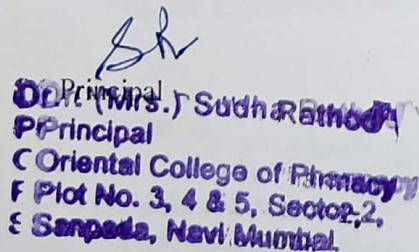 Principal
Dr. (Mrs.) Sudha Rathod
Principal
Oriental College of Pharmacy
Plot No. 3, 4 & 5, Sector-2,
Sanpada, Navi Mumbai